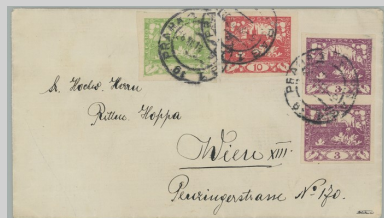 PRAHA
10
PRAHA
3
3
Sr. Hochw. Herrn
Ritter Hoppa
Wien XIII.
Penzingerstrasse No 170.